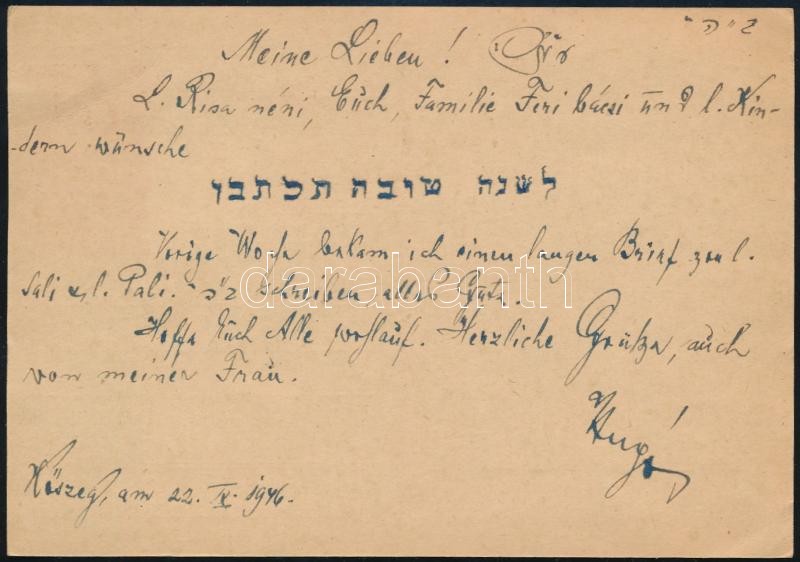 ב"ה
Meine Lieben!
L. Risa néni, Euch, Familie Feri bácsi und l. Kin-
-dern wünsche
לשנה טובה תכתבו
Vorige Woche bekam ich einen langen Brief von l.
Sali u. l. Pali. ב"ה schreiben alles Gute.
Hoffe Euch Alle wohlauf. Herzliche Grüße, auch
von meiner Frau.
Hugó
Kőszeg, am 22. IX. 1946.
darabanth